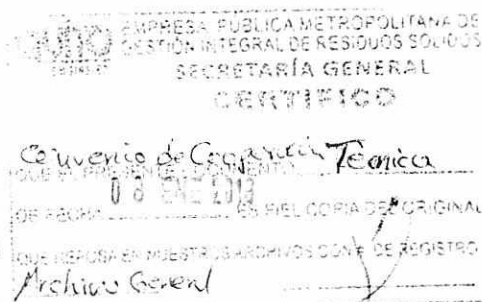 EMPRESA PÚBLICA METROPOLITANA DE
GESTIÓN INTEGRAL DE RESIDUOS SÓLIDOS
SECRETARÍA GENERAL
CERTIFICO
Convenio de Cooperación Técnica
QUE EL PRESENTE DOCUMENTO
DE FECHA 08 ENE ES FIEL COPIA DEL ORIGINAL
QUE REPOSA EN NUESTROS ARCHIVOS CON DE REGISTRO
Archivo General